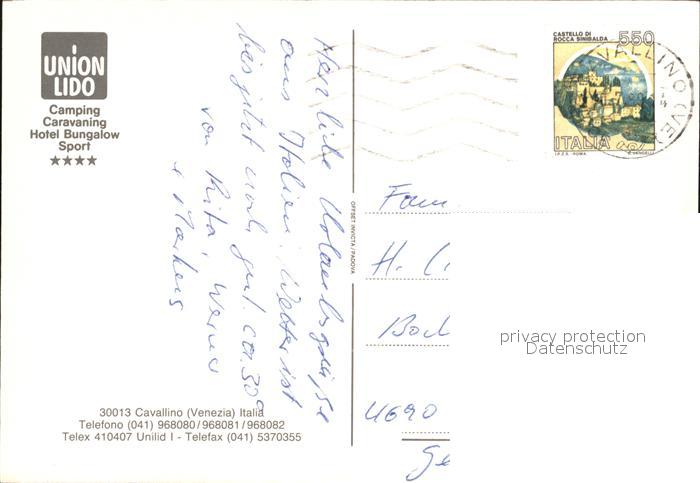 UNION
LIDO
Camping
Caravaning
Hotel Bungalow
Sport
★★★★
Herzliche Urlaubsgrüße
aus Italien. Wetter ist
bis jetzt noch gut. ca. 30°
von Rita, Werner
+ Markus
30013 Cavallino (Venezia) Italia
Telefono (041) 968080/968081/968082
Telex 410407 Unilid I - Telefax (041) 5370355
OFFSET INVICTA/PADOVA
CASTELLO DI
ROCCA SINIBALDA
550
ITALIA
I.P.Z.S. - ROMA
CAVALLINO (VE)
Fam.
H.
4690
privacy protection
Datenschutz